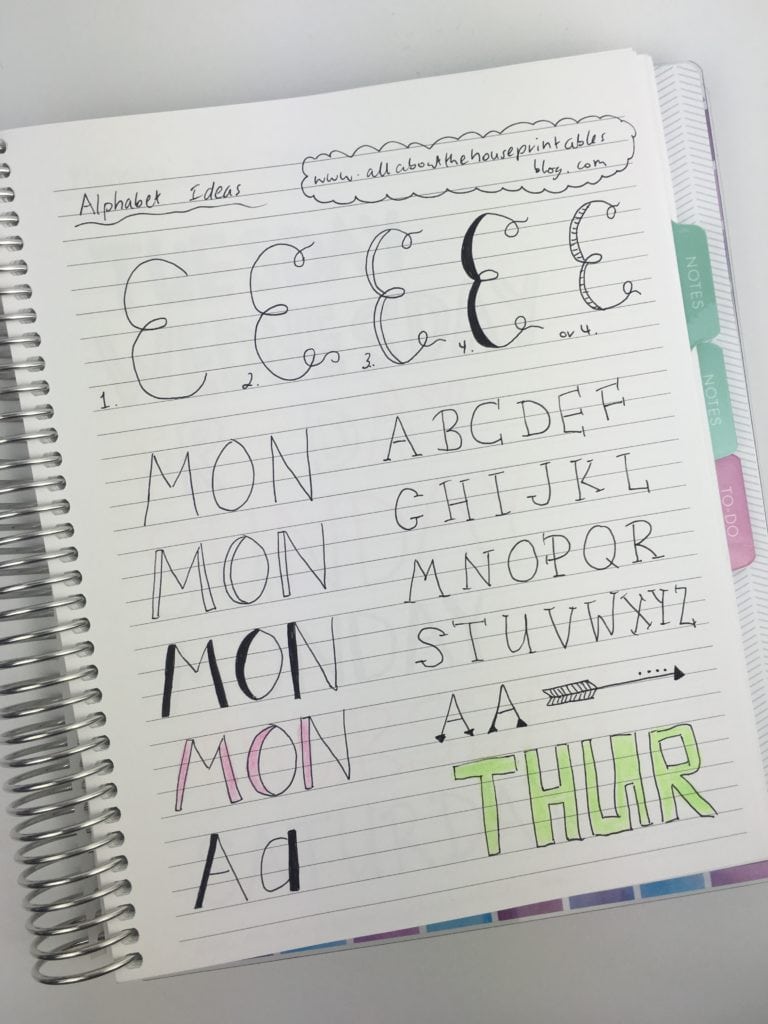 Alphabet Ideas
www.allaboutthehouseprintables
blog.com
E E E E E
1. 2. 3. 4. or 4.
MON
ABCDEF
GHIJKL
MON
MNOPQR
MON
STUVWXYZ
AA
MON
THUR
Aa
NOTES
NOTES
TO-DO